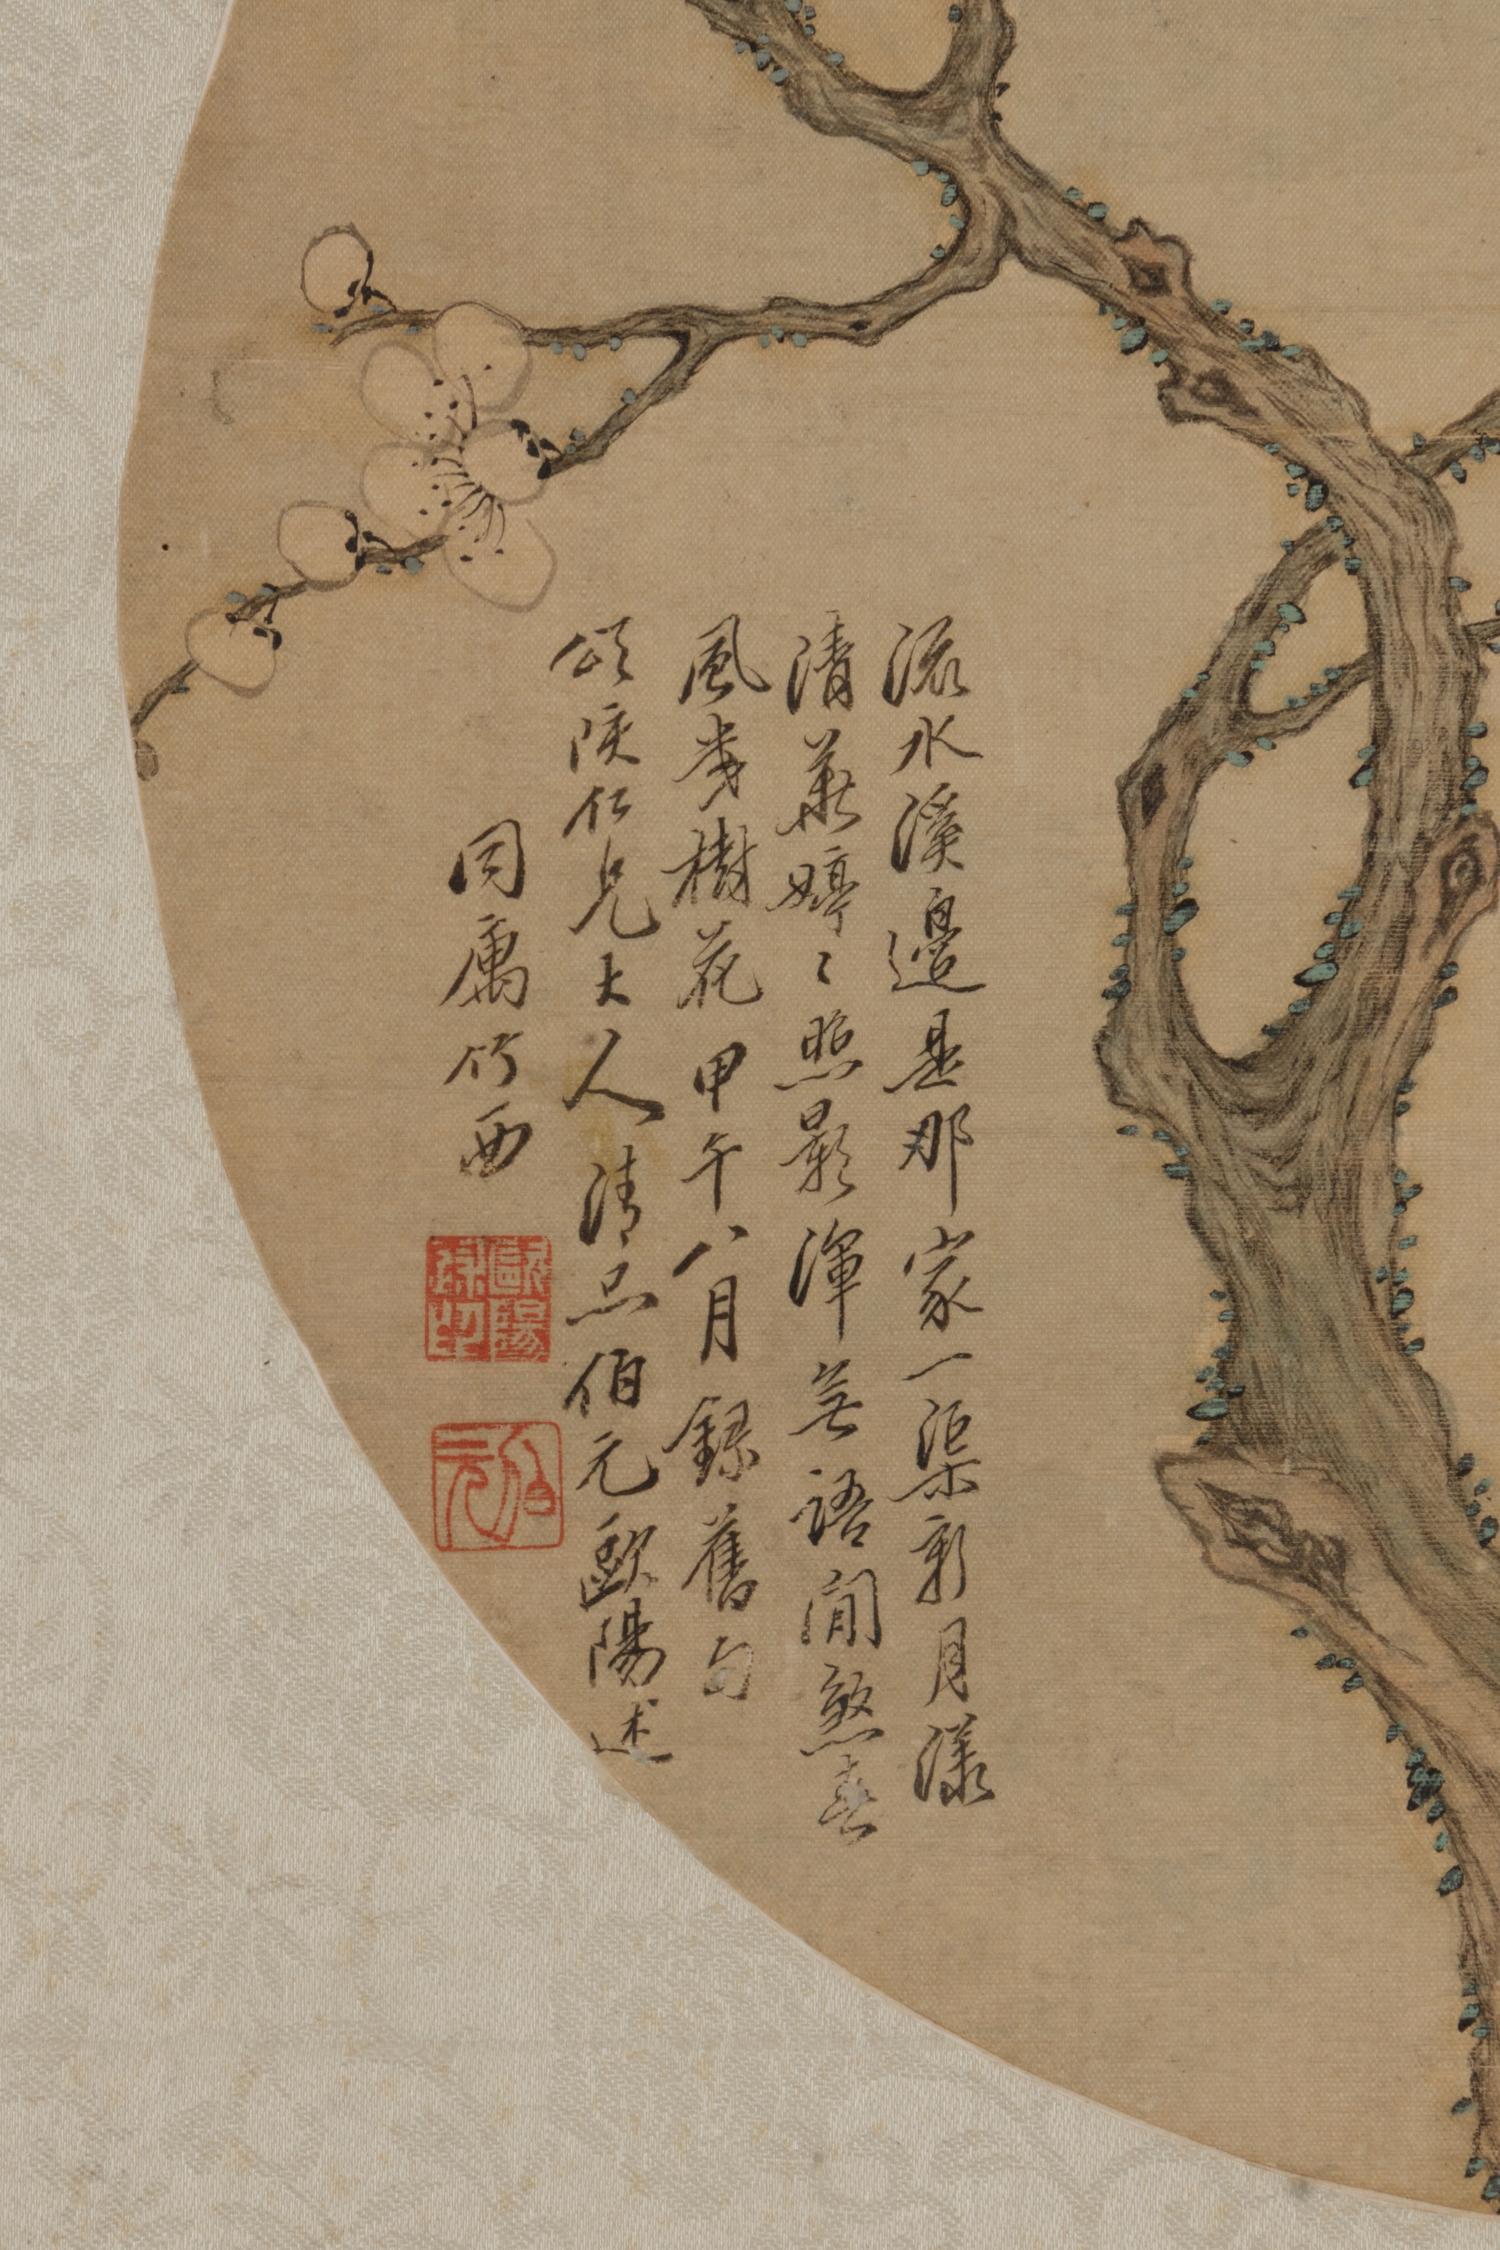 流水溪邊是那家一渠新月漾
清華婷〻照影渾無語閒煞春
風幾樹花 甲午八月錄舊句
頌陔仁兄大人清正伯元歐陽述
同寓竹西
歐陽述印
伯元